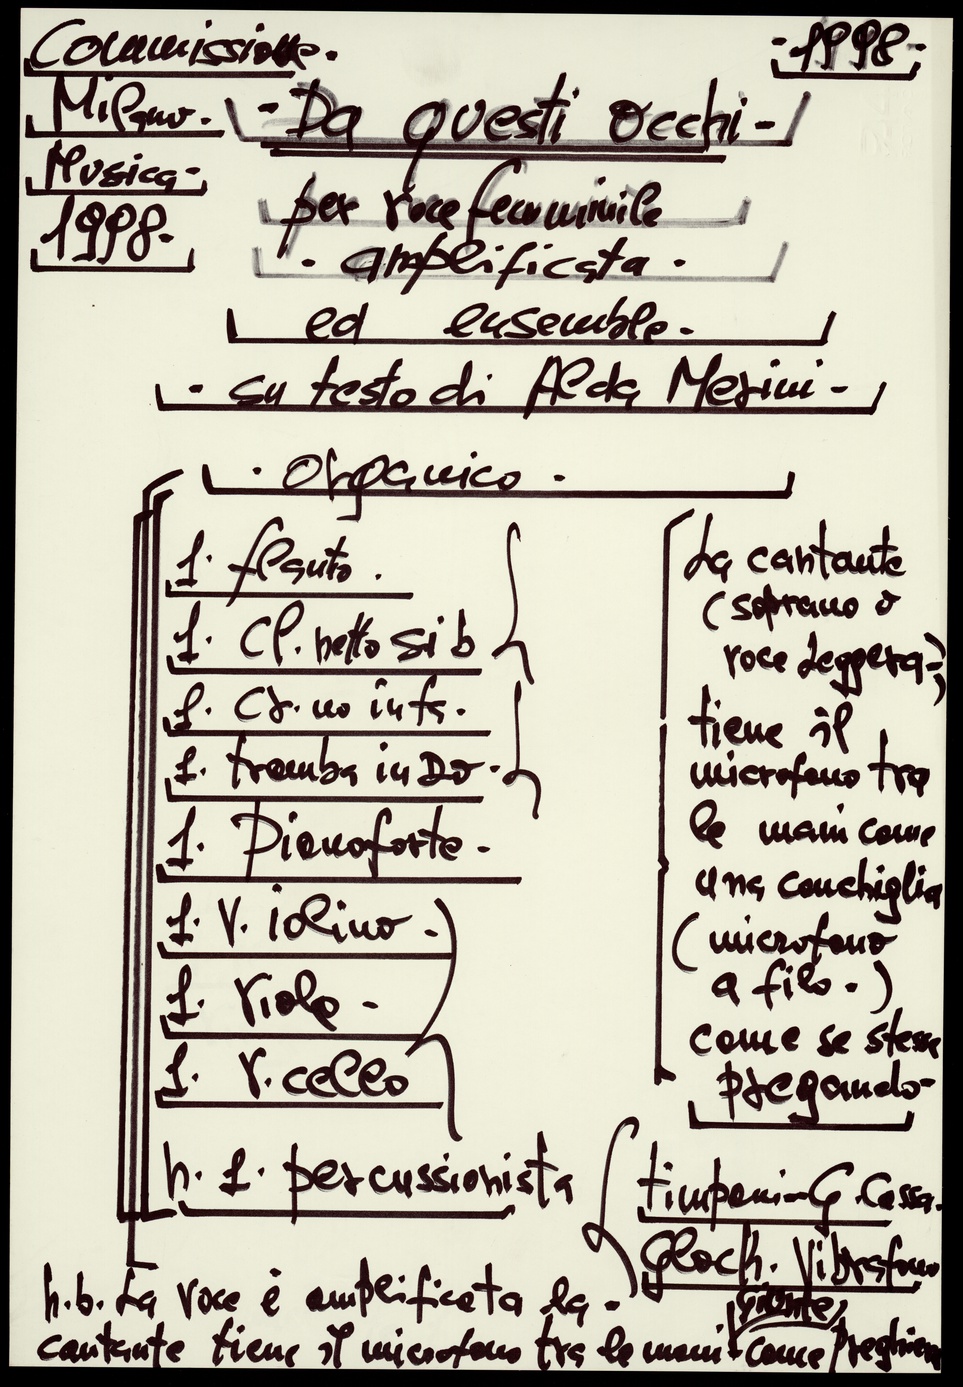 Commissione.
Milano.
Musica.
1998.
-1998-
- Da questi occhi -
per voce femminile
. amplificata .
ed ensemble.
- su testo di Alda Merini -
. Organico .
1. flauto .
1. Cl. netto si b
1. Cr. no in fa .
1. tromba in Do .
1. Pianoforte .
1. V. iolino .
1. viola -
1. V. cello
n. 1. percussionista
timpani - G. Cassa.
Gloch. Vibrafono
La cantante
(soprano o
voce leggera -)
tiene il
microfono tra
le mani come
una conchiglia
(microfono
a filo . )
come se stesse
pregando -
n.b. La voce è amplificata la .
cantante tiene il microfono tra le mani giunte, come preghiera